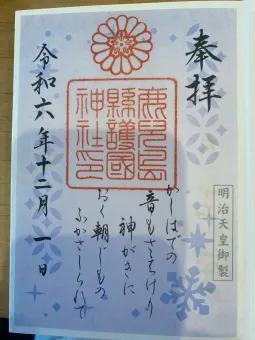 奉拝
明治天皇御製
かしはでの
音もさえけり
神がきに
おく朝じもの
ふかさしられて
鹿兒島
縣護國
神社印
令和六年十二月一日